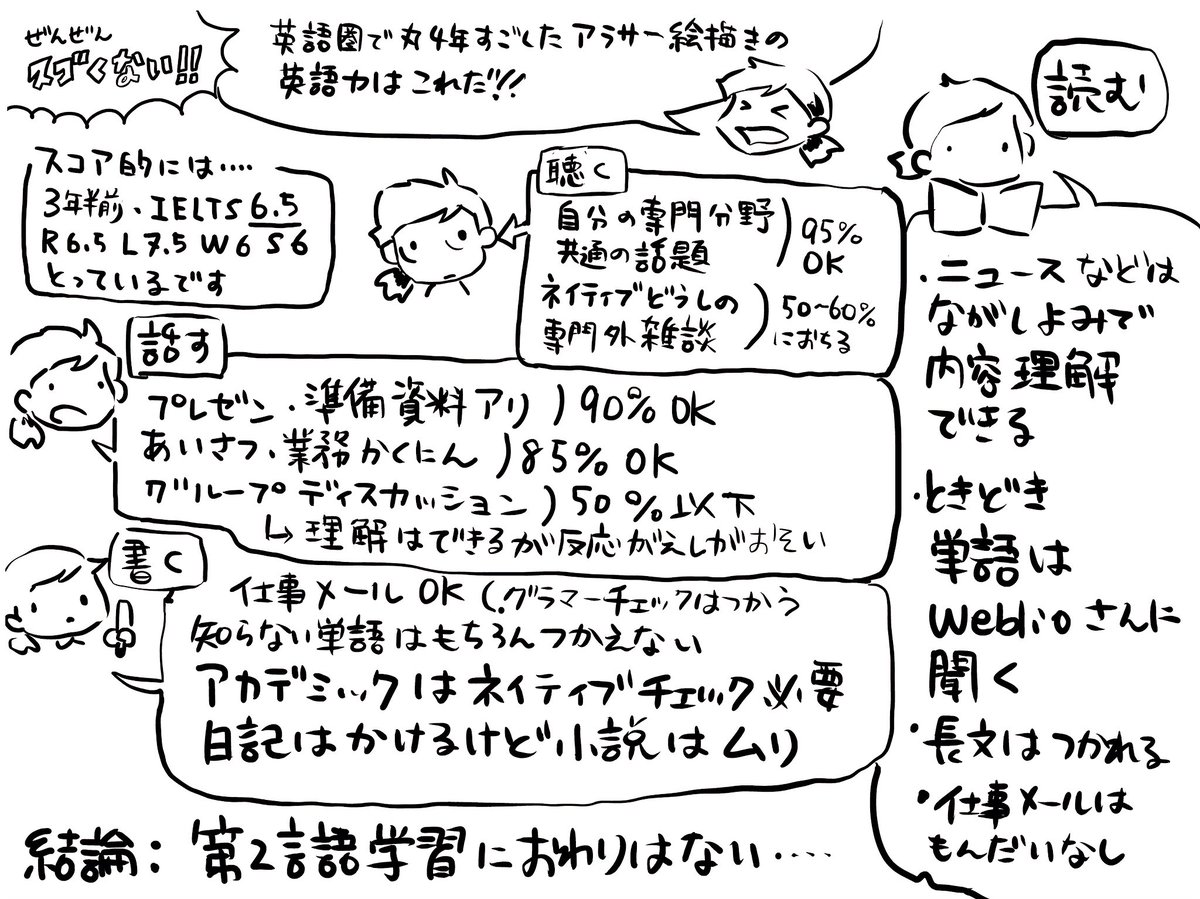 ぜんぜん
スゴくない!!
英語圏で丸4年すごしたアラサー絵描きの
英語力はこれだ!!
スコア的には‥‥
3年半前、IELTS 6.5
R6.5 L7.5 W6 S6
とっているです
聴く
自分の専門分野
共通の話題
95%
OK
ネイティブどうしの
専門外雑談
50~60%
におちる
話す
プレゼン・準備資料アリ ) 90% OK
あいさつ、業務かくにん ) 85% OK
グループディスカッション ) 50%以下
↳ 理解はできるが反応がえしがおそい
書く
仕事メールOK (グラマーチェックはつかう
知らない単語はもちろんつかえない
アカデミックはネイティブチェック必要
日記はかけるけど小説はムリ
読む
・ニュースなどは
ながしよみで
内容理解
できる
・ときどき
単語は
Weblioさんに
聞く
・長文はつかれる
・仕事メールは
もんだいなし
結論:第2言語学習におわりはない‥‥